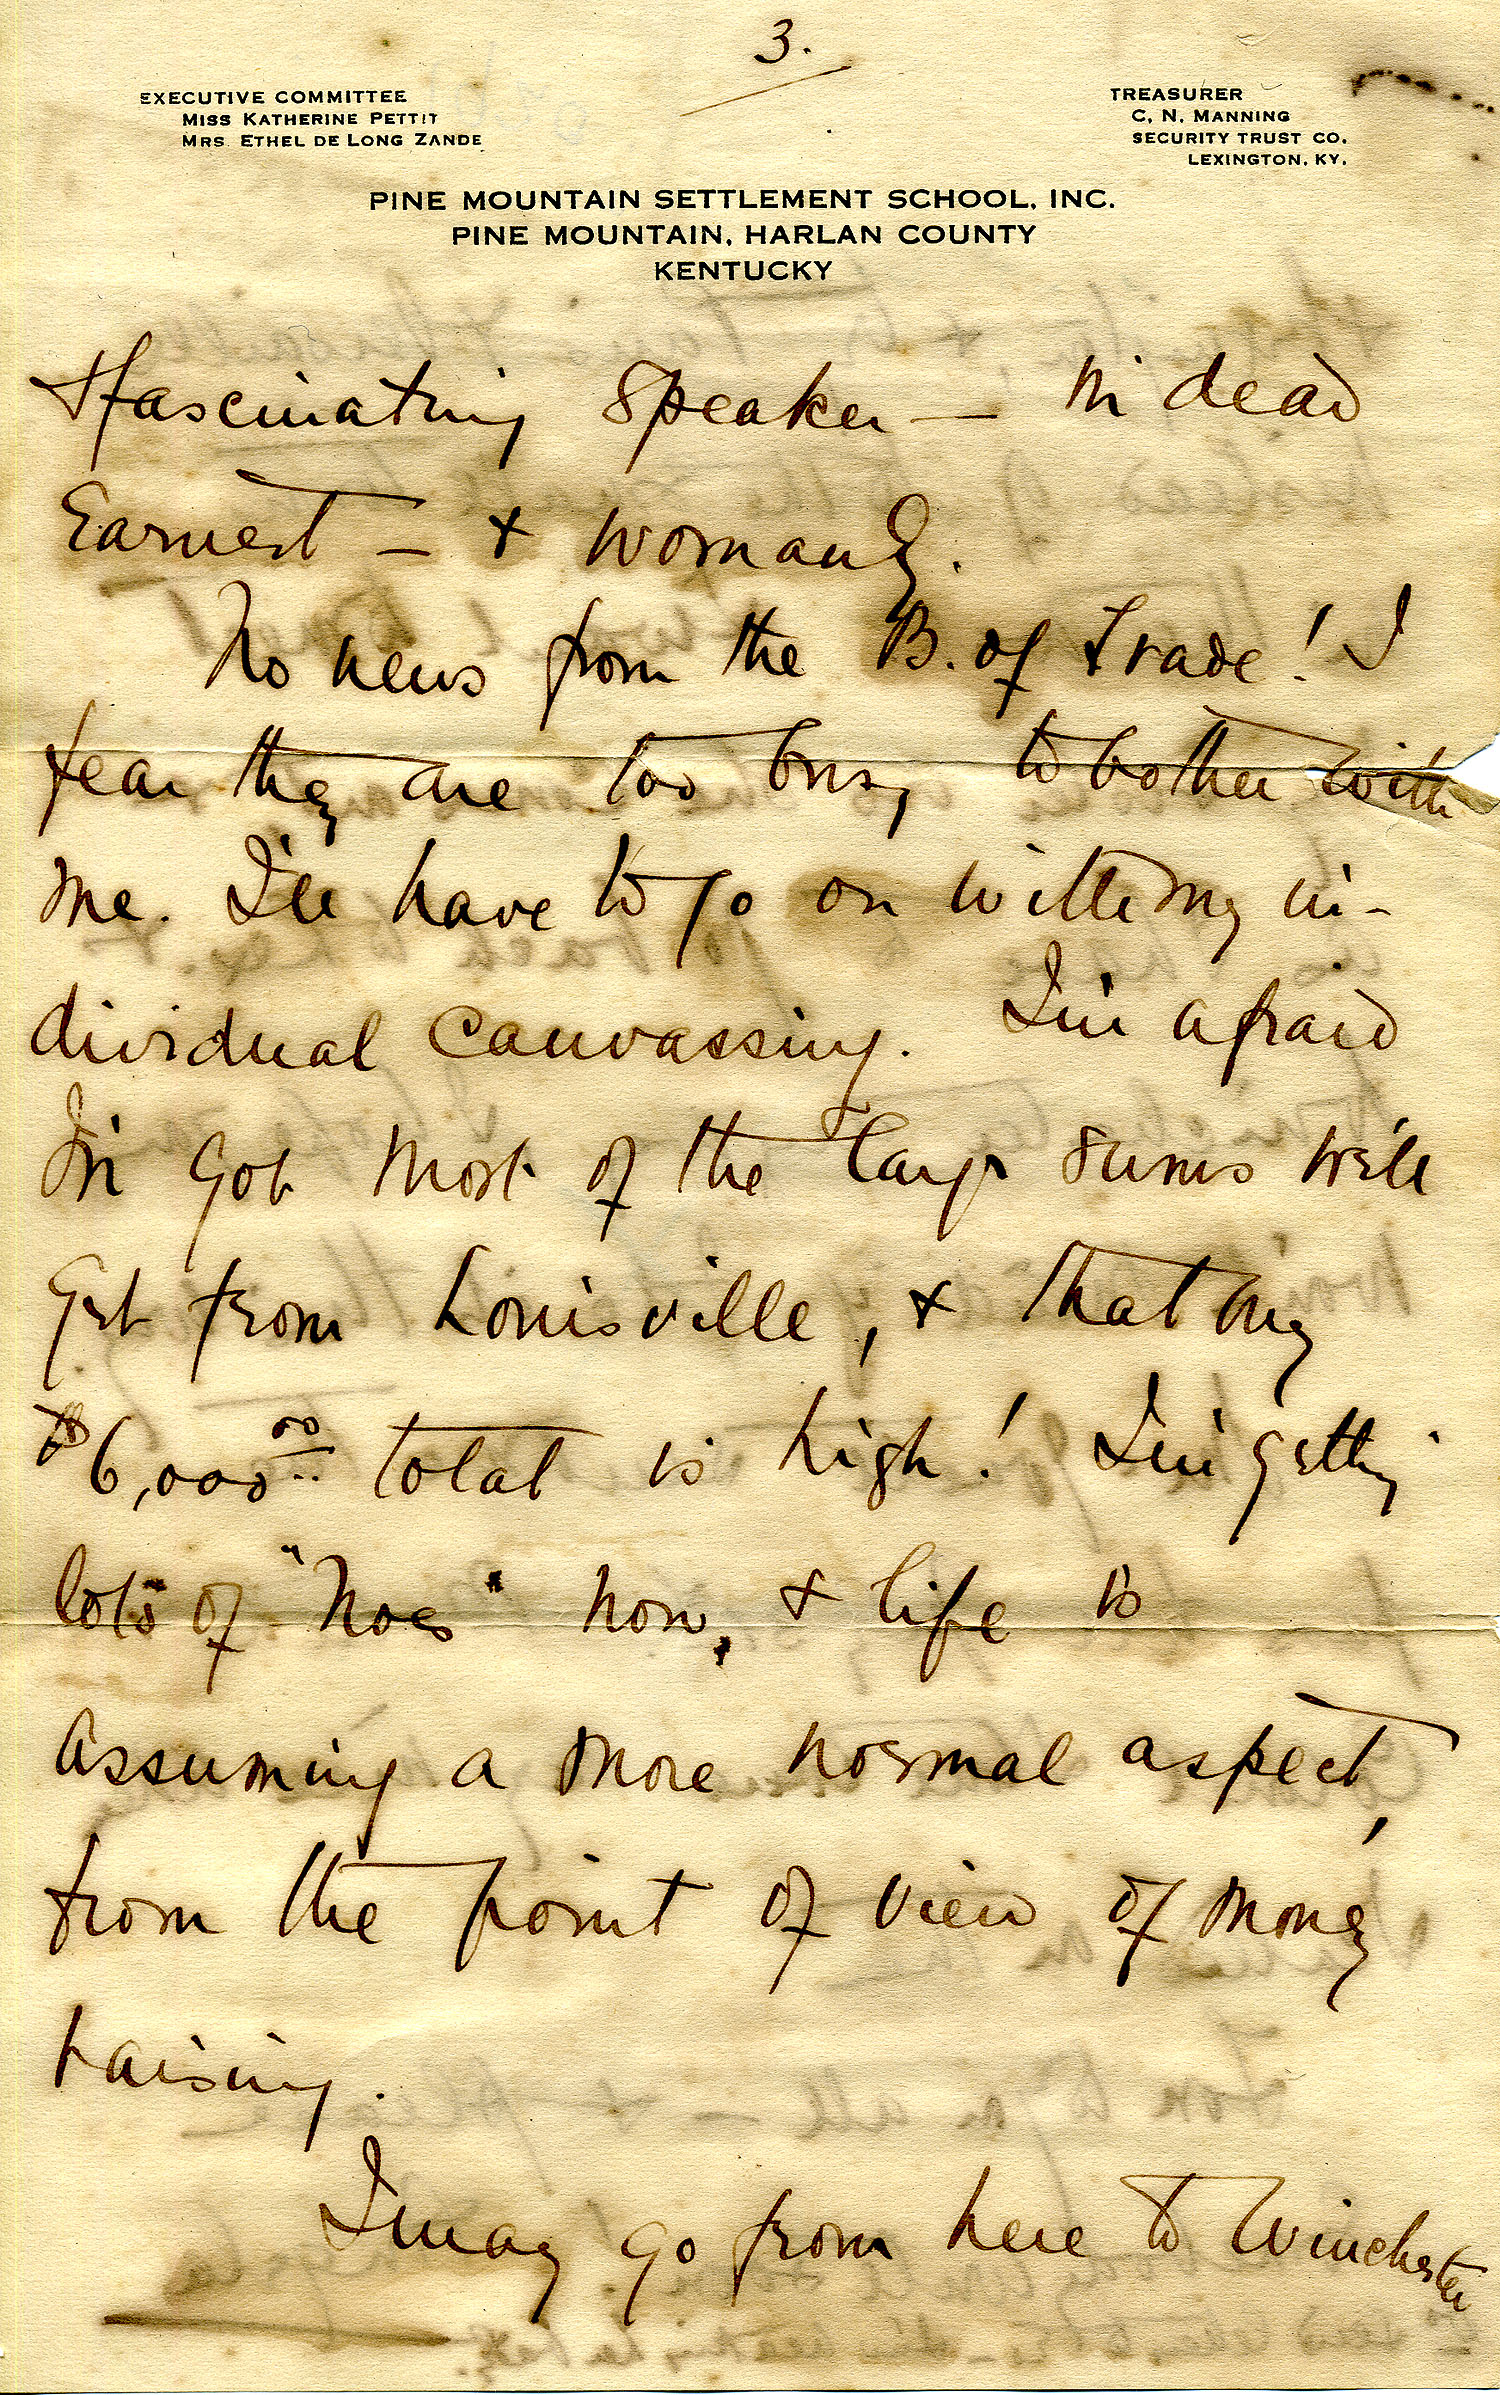 3.
EXECUTIVE COMMITTEE
MISS KATHERINE PETTIT
MRS. ETHEL DE LONG ZANDE
TREASURER
C. N. MANNING
SECURITY TRUST CO.
LEXINGTON, KY.
PINE MOUNTAIN SETTLEMENT SCHOOL, INC.
PINE MOUNTAIN, HARLAN COUNTY
KENTUCKY
fascinating speaker — in dead
Earnest — & womanly.
No news from the B. of Trade! I
fear they are too busy to bother with
me. I'll have to go on with my in-
dividual canvassing. I'm afraid
I've got most of the large sums we'll
get from Louisville, & that my
$6,000.00 total is high! I'm getting
lots of "Noes" now, & life is
assuming a more normal aspect,
from the point of view of money
raising.
I may go from here to Winchester